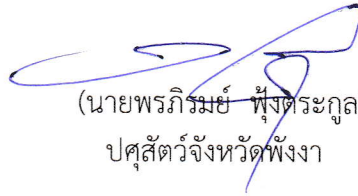 (นายพรภิรมย์ ฟุ้งตระกูล
ปศุสัตว์จังหวัดพังงา